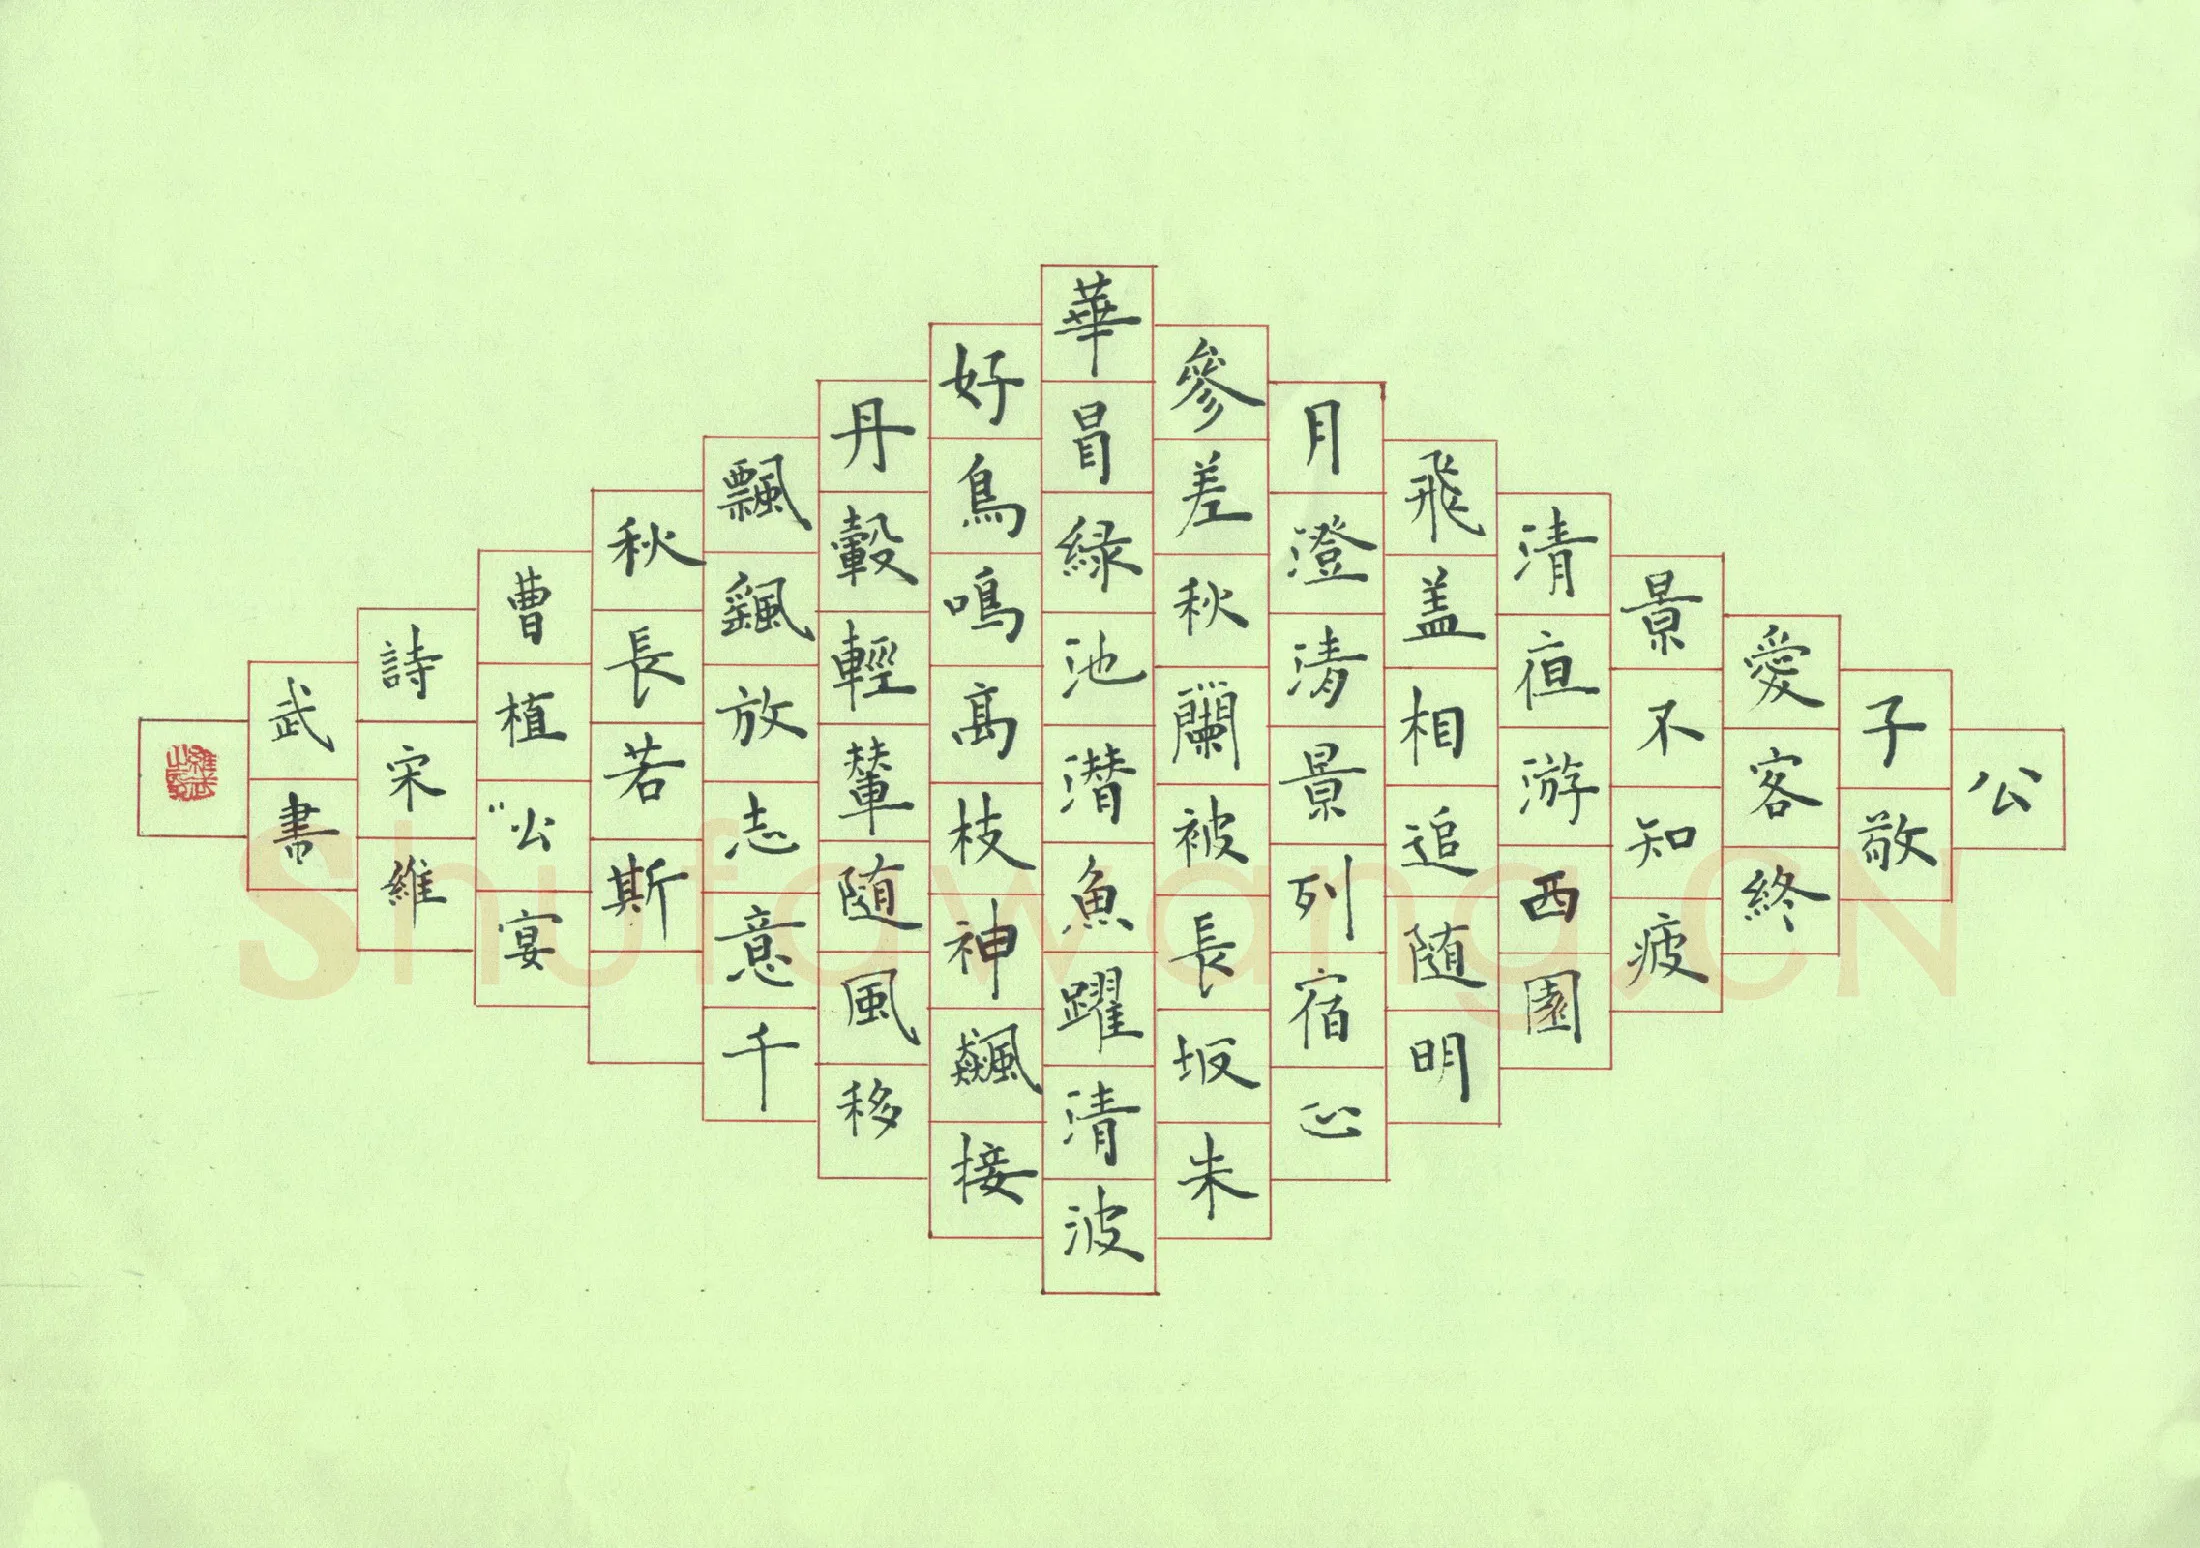 公
子敬
愛客終
景不知疲
清亱游西園
飛盖相追随明
月澄清景列宿正
參差秋蘭被長坂朱
華冒緑池潜魚躍清波
好鳥鳴高枝神飈接
丹轂輕輦随風移
飄颻放志意千
秋長若斯
曹植“公宴
詩宋維
武書
Shufawang.CN